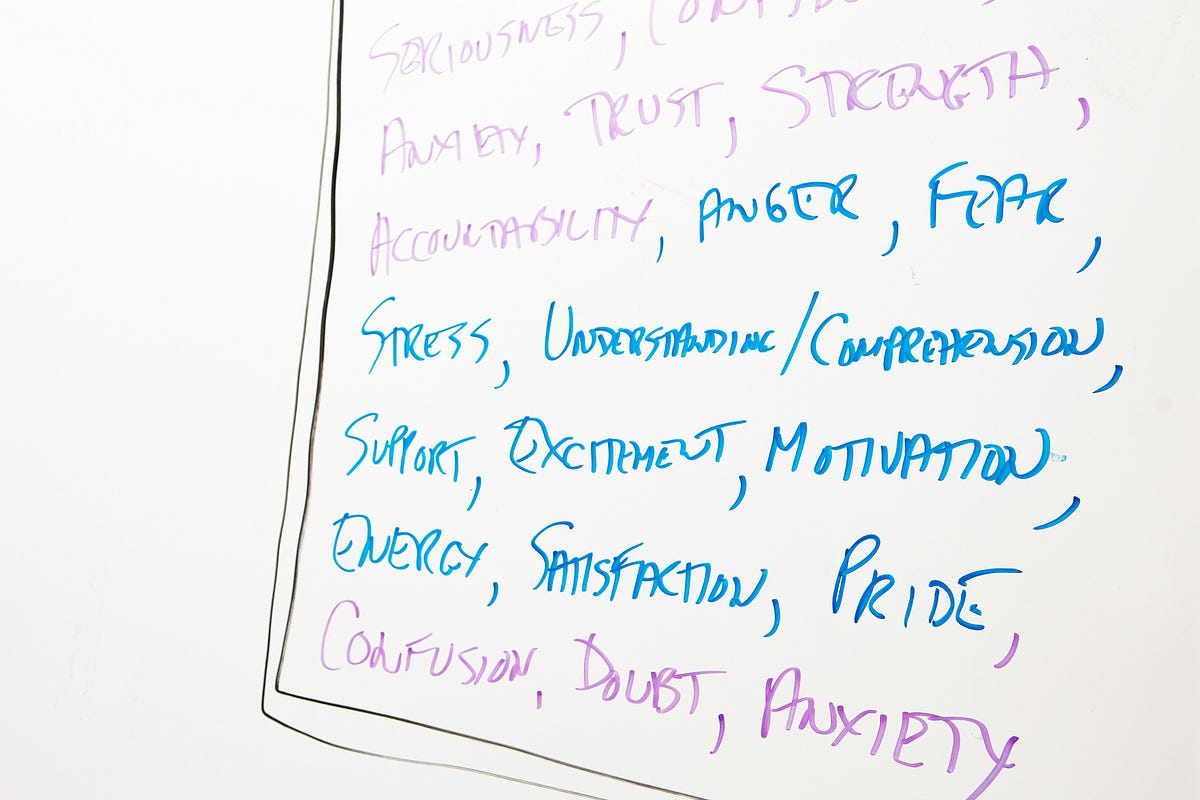 SERIOUSNESS,
ANXIETY, TRUST, STRENGTH,
ACCOUNTABILITY, ANGER, FEAR,
STRESS, UNDERSTANDING/COMPREHENSION,
SUPPORT, EXCITEMENT, MOTIVATION,
ENERGY, SATISFACTION, PRIDE,
CONFUSION, DOUBT, ANXIETY